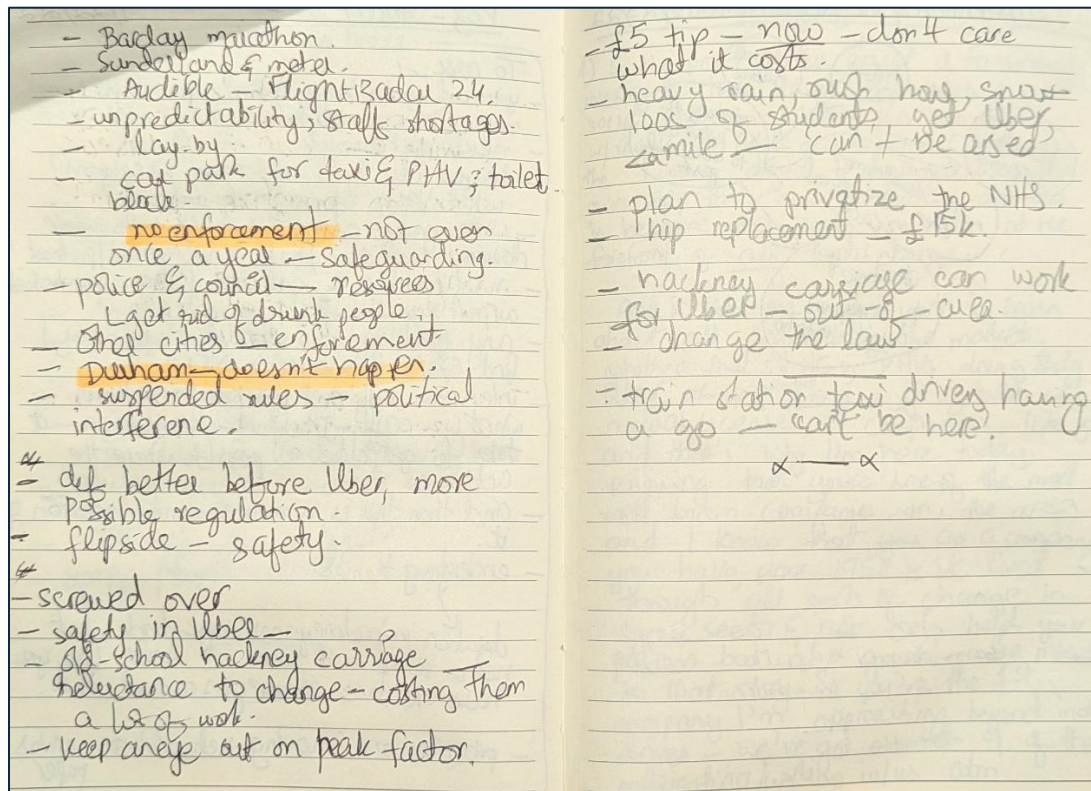 - Barclay marathon.
- Sunderland & meter.
- Audible - FlightRadar 24.
- unpredictability; staff shortages.
- lay-by
- car park for taxi & PHV; toilet
block
- no enforcement - not even
once a year - safeguarding.
- police & council - resources
get rid of drunk people
- Other cities - enforement
- Durham - doesn't happen.
- suspended rules - political
interference.
- def better before Uber, more
possible regulation.
- flipside - safety.
- screwed over
- safety in Uber -
- old-school hackney carriage -
reluctance to change - costing them
a lot of work.
- keep an eye out on peak factor.
- £5 tip - now - don't care
what it costs.
- heavy rain, rush hour,
100s of students, get Uber,
<a mile - can't be arsed
- plan to privatize the NHS.
- hip replacement - £15k.
- hackney carriage can work
for Uber - out-of-area.
- change the law
- train station taxi drivers having
a go - can't be here!